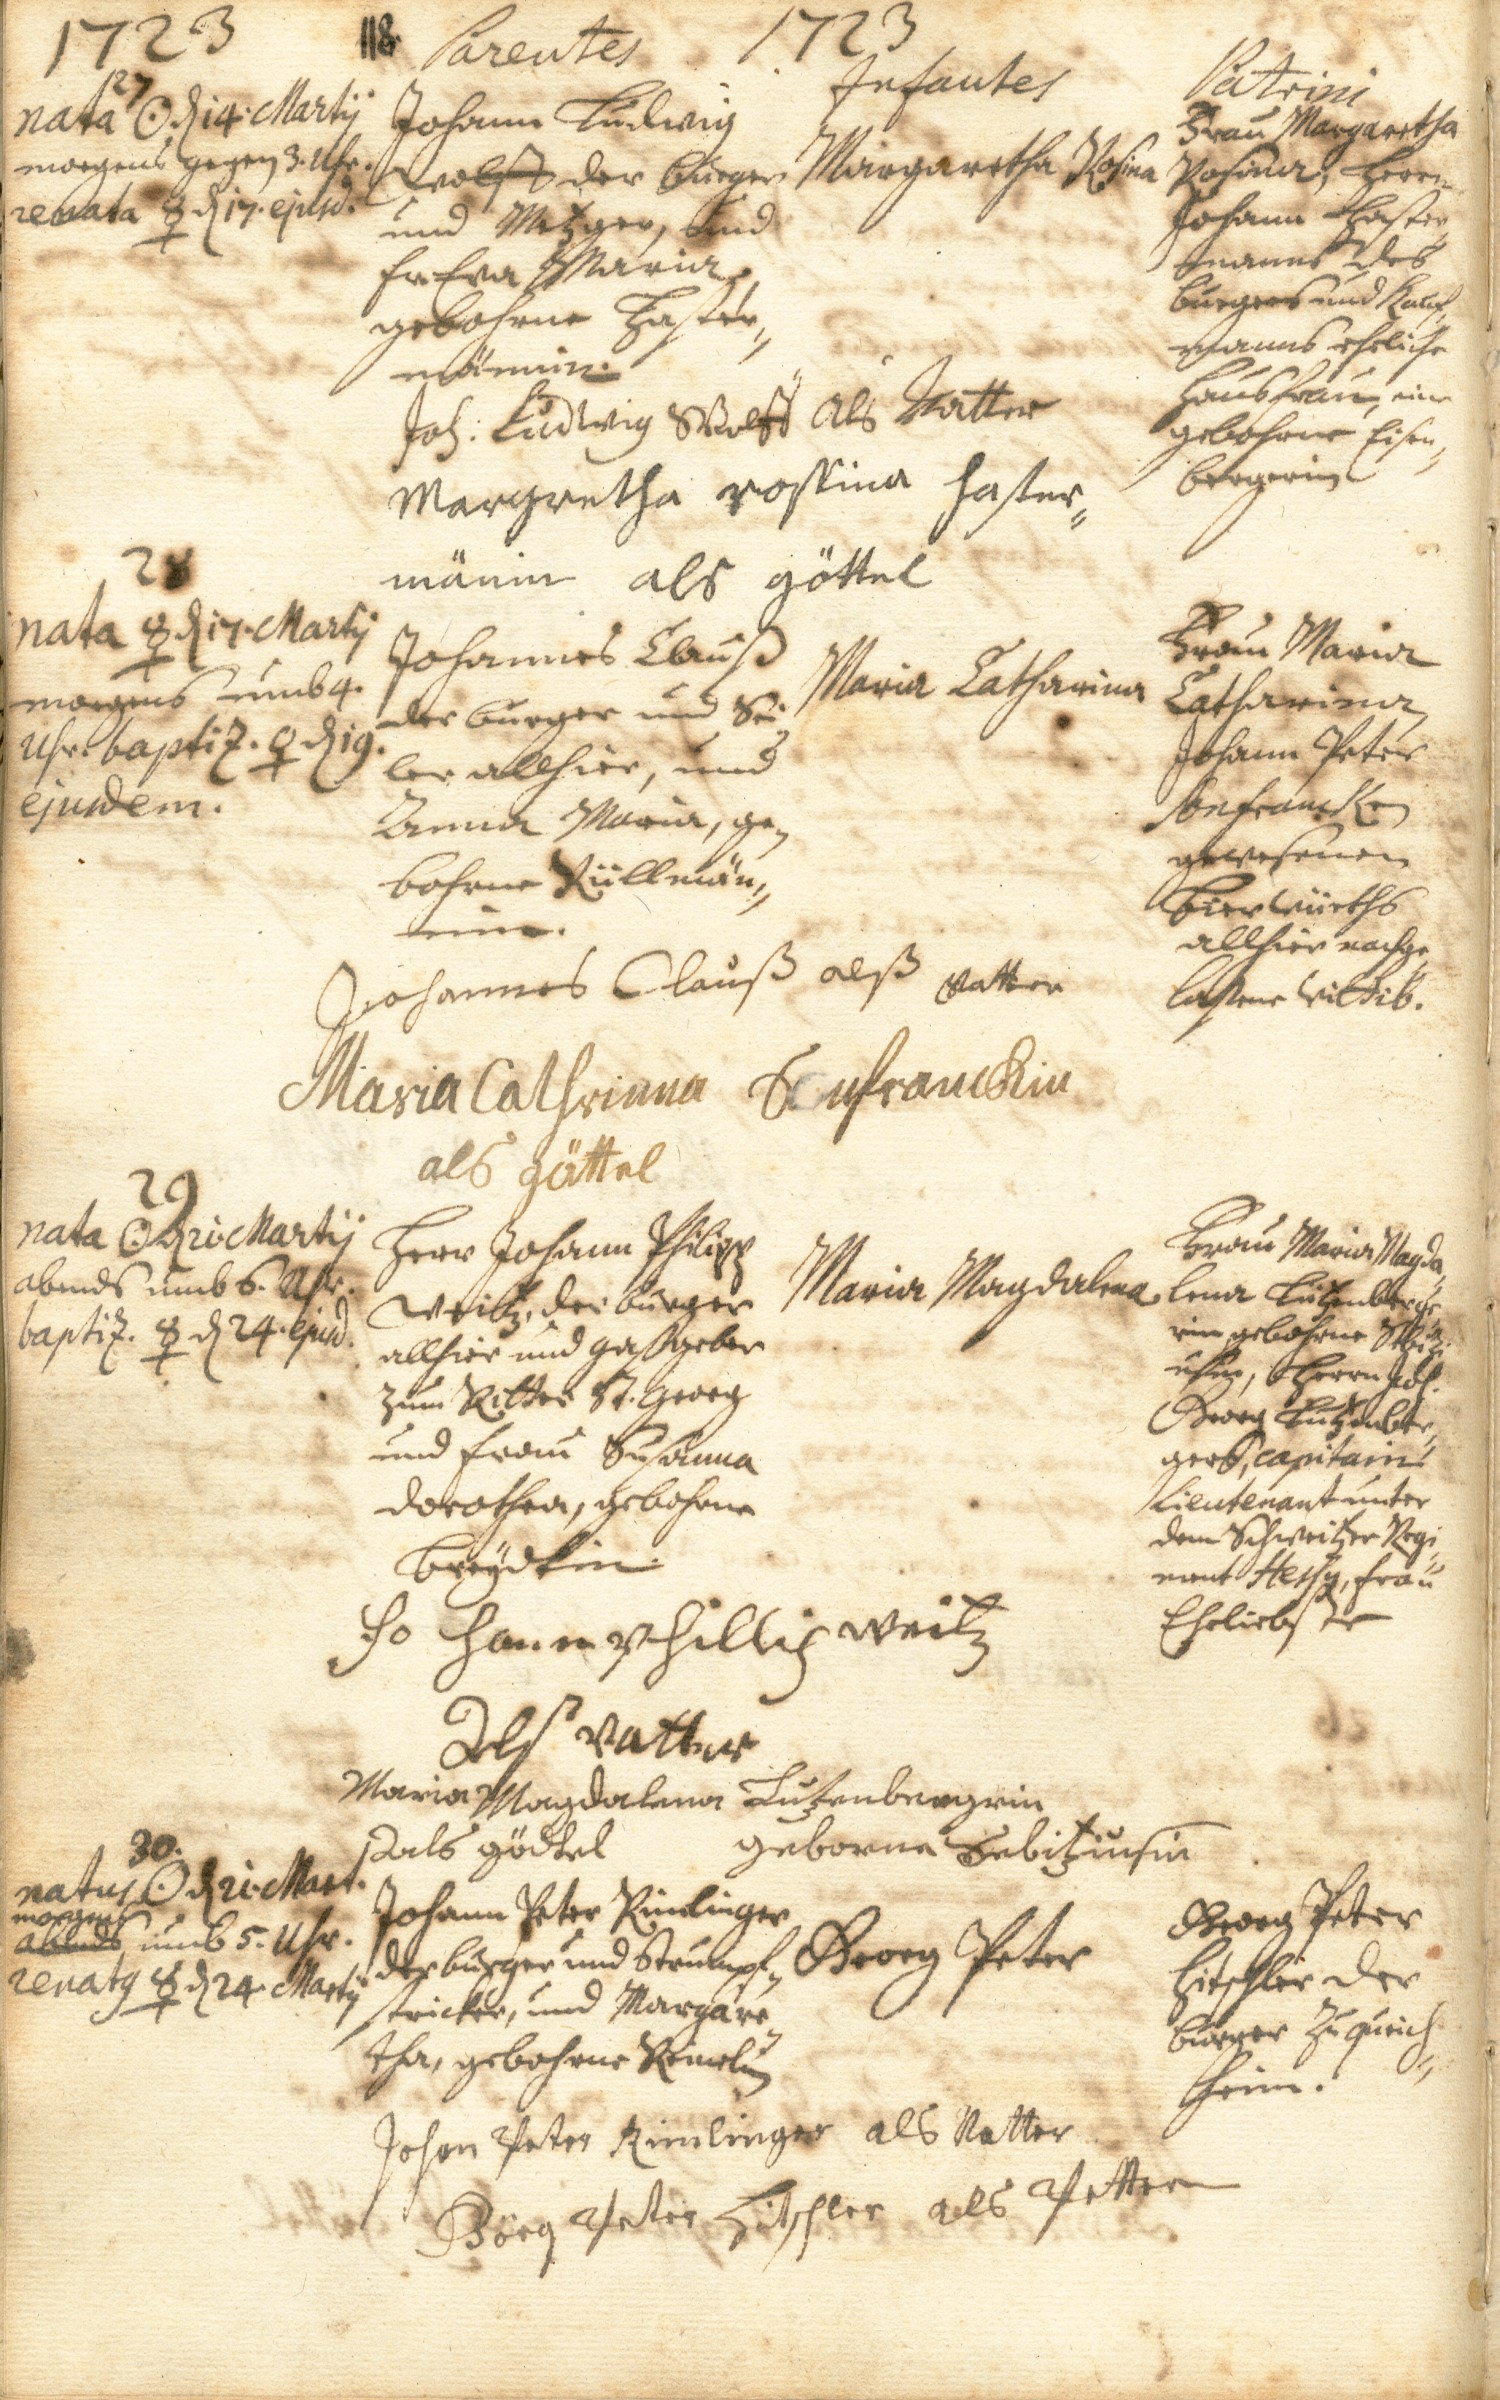 1723
118.
Parentes
1723
Infantes
Patrini
127
nata ☉ d. 14. Martij
morgens gegen 3. Uhr.
renata ☿ d. 17. ejusd.
Johann Ludwig
Wolff der burger
und Metzger, und
fr. Eva Maria,
gebohrne Haster„
männin.
Margaretha Rosina
Frau Margaretha
Rosina, Herrn
Johann Haster„
manns des
burgers und Kauf„
manns eheliche
Hausfrau, eine
gebohrne Eisen„
bergerin
Joh: Ludwig Wolff als Vatter
Margretha rossina haster„
mänin als göttel
28
nata ☿ d. 17. Martij
morgens umb 4.
Uhr. baptiz. ♀ d. 19.
ejusdem.
Johannes Clauß
der burger und Sei„
ler allhier, und
Anna Maria, ge„
bohrne Küllmän„
nin.
Maria Catharina
Frau Maria
Catharina,
Johann Peter
Senfrancken
gewesenen
bierwürths
allhier nachge„
laßene Wittib.
Johannes Clauß alß vatter
Maria Cathrinna Senfranckin
als göttel
29
nata ☉ d. 21. Martij
abends umb 6. Uhr.
baptiz. ☿ d. 24. ejusd.
Herr Johann Philipp
Weitz, der burger
allhier und gastgeber
zum Ritter St. Georg
und frau Susanna
dorothea, gebohrne
Maria Magdalena
Frau Maria Magda„
lena Lutzenberge„
rin gebohrne
Herrn Joh.
Georg Lutzenber„
gers, capitain
Lieutenant unter
dem Schweitzer Regi„
ment Hessy, frau
Eheliebste
Johann Phillip weitz
Als vatter
Maria Magdalena Lutzenbergrin
als gödtel geborne Sebitziusin
30.
natus ☉ d. 21. Mart.
morgens
abends umb 5. Uhr.
renatus ☿ d. 24. Martij
Johann Peter Rimlinger
der burger und Strumpf„
stricker, und Margare„
tha, gebohrne
Georg Peter
Georg Peter
Hitschler der
burger zu Queich„
heim.
Johan Peter Rimlinger als Vatter
Görg Peter Hitschler als Pettern